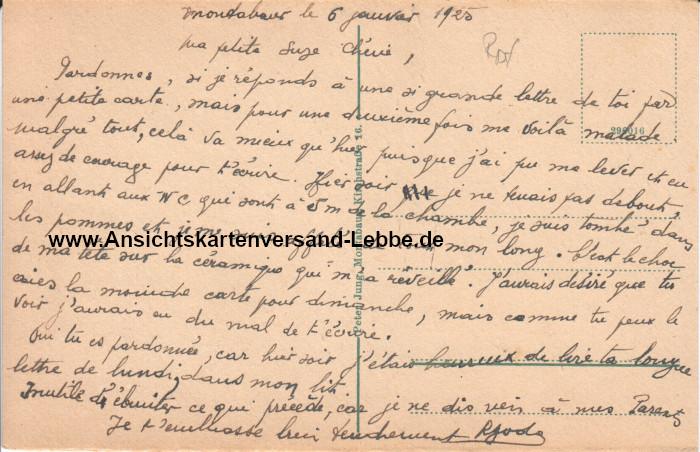 Montabaur le 6 janvier 1925
Ma petite Suze Chérie,
Pardonnes, si je réponds à une si grande lettre de toi par
une petite carte, mais pour une deuxième fois me voilà malade
malgré tout, celà va mieux qu'hier puisque j'ai pu me lever et eu
assez de courage pour t'écrire. Hier soir je ne tenais pas debout,
en allant aux WC qui sont à 5 m de la chambre, je suis tombé dans
les pommes et je me suis de tout mon long. C'est le choc
de ma tête sur la céramique qui m'a réveillé. J'aurais désiré que tu
aies la moindre carte pour dimanche, mais comme tu peux le
voir j'aurais eu du mal de t'écrire.
Oui tu es pardonnée, car hier soir j'étais heureux de lire ta longue
lettre de lundi, dans mon lit
Inutile d'ébruiter ce qui précède, car je ne dis rien à mes Parents
Je t'embrasse bien tendrement
299016
Peter Jung, Montabaur, Kirchstraße 16.
www.Ansichtskartenversand-Lebbe.de